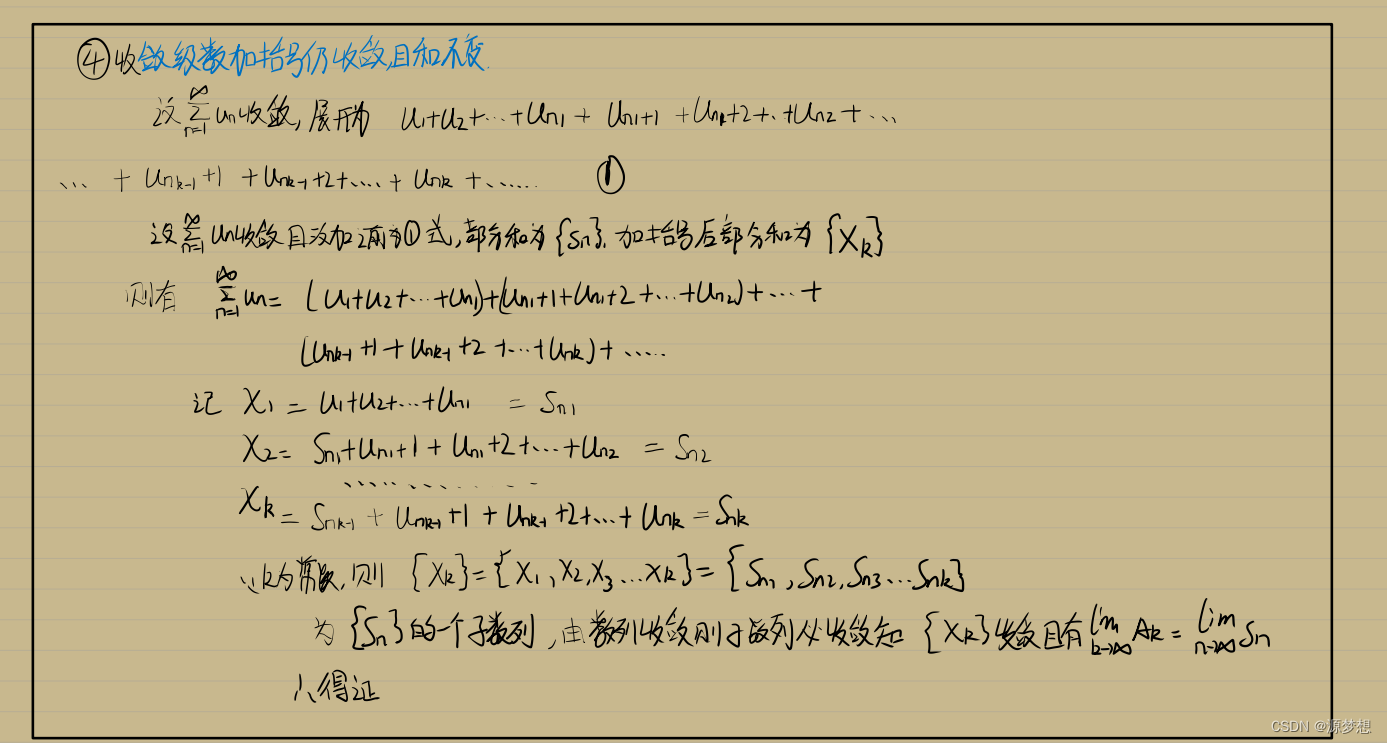 ④收敛级数加括号仍收敛,且和不变.
设 ∞∑n=1 un收敛,展开为 u1+u2+…+un1 + un1+1 +un1+2+…+un2+…
… + unk-1+1 +unk-1+2+……+ unk +…… ①
设 ∞∑n=1 un收敛且没加 为①式,部分和为{Sn}. 加括号后部分和为{Xk}
则有 ∞∑n=1 un= (u1+u2+…+un1)+(un1+1+un1+2+…+un2)+…+
(unk-1+1+unk-1+2+…+unk)+……
记 X1 = u1+u2+…+un1 = Sn1
X2= Sn1+un1+1+un1+2+…+un2 = Sn2
…………
Xk = Snk-1 + unk-1+1 + unk-1+2+…+ unk =Snk
∵k为常数,则 {Xk}={X1,X2,X3…Xk}={Sn1,Sn2,Sn3…Snk}
为{Sn}的一个子数列,由数列收敛则子数列必收敛知 {Xk}收敛且有lim k→∞ Ak= lim n→∞ Sn
∴得证
CSDN @源梦想